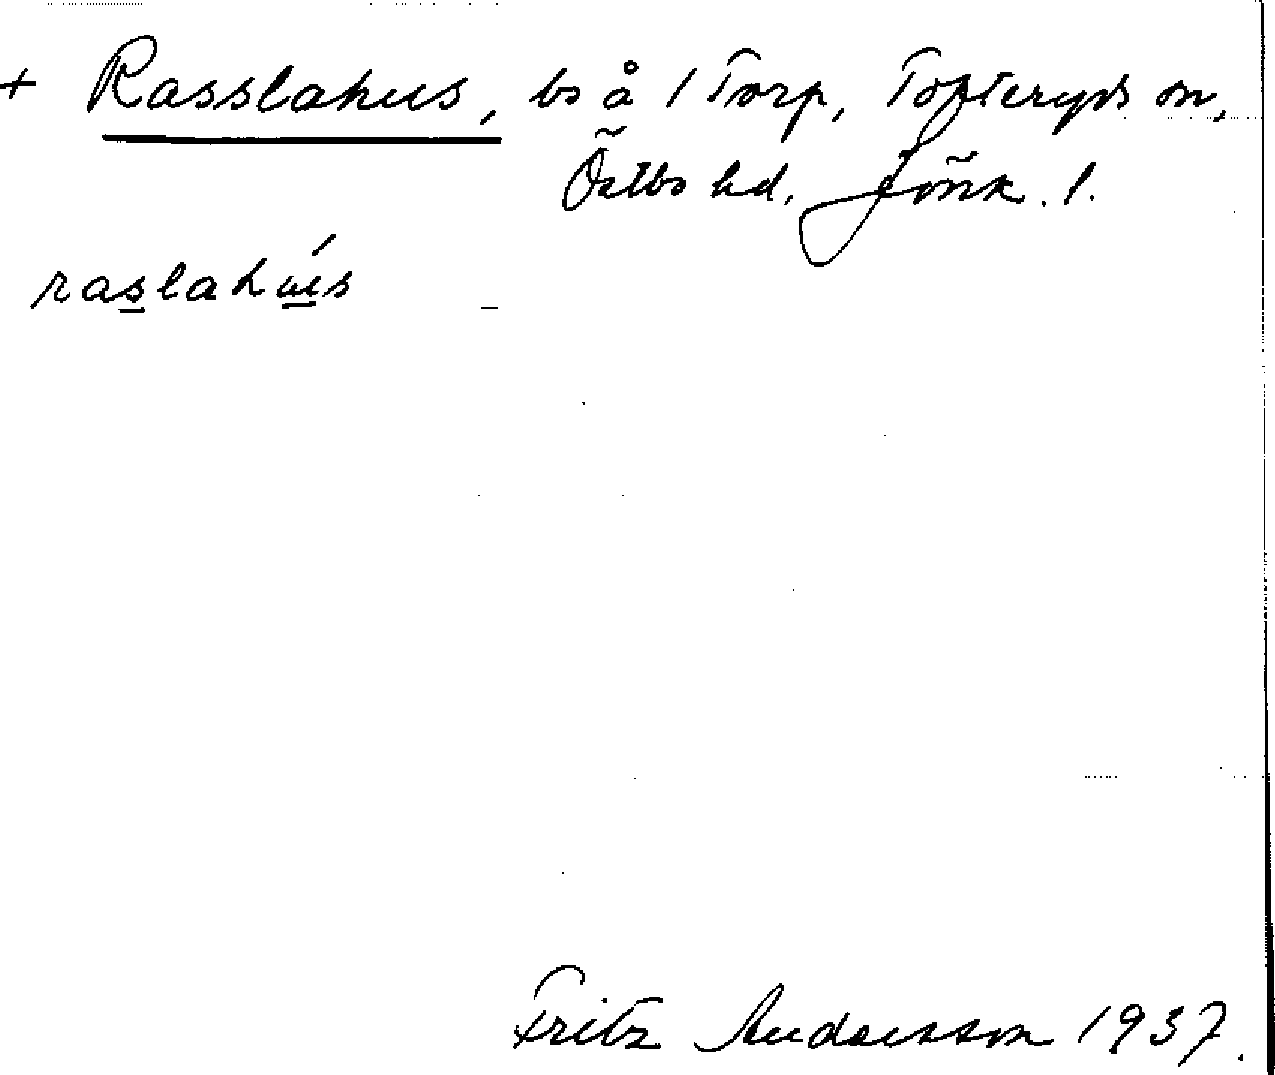 + Rasslahus, bs å 1 Torp, Tofteryds sn,
Östbo hd. Jönk. l.
raslahús
Fritz Andersson 1937.